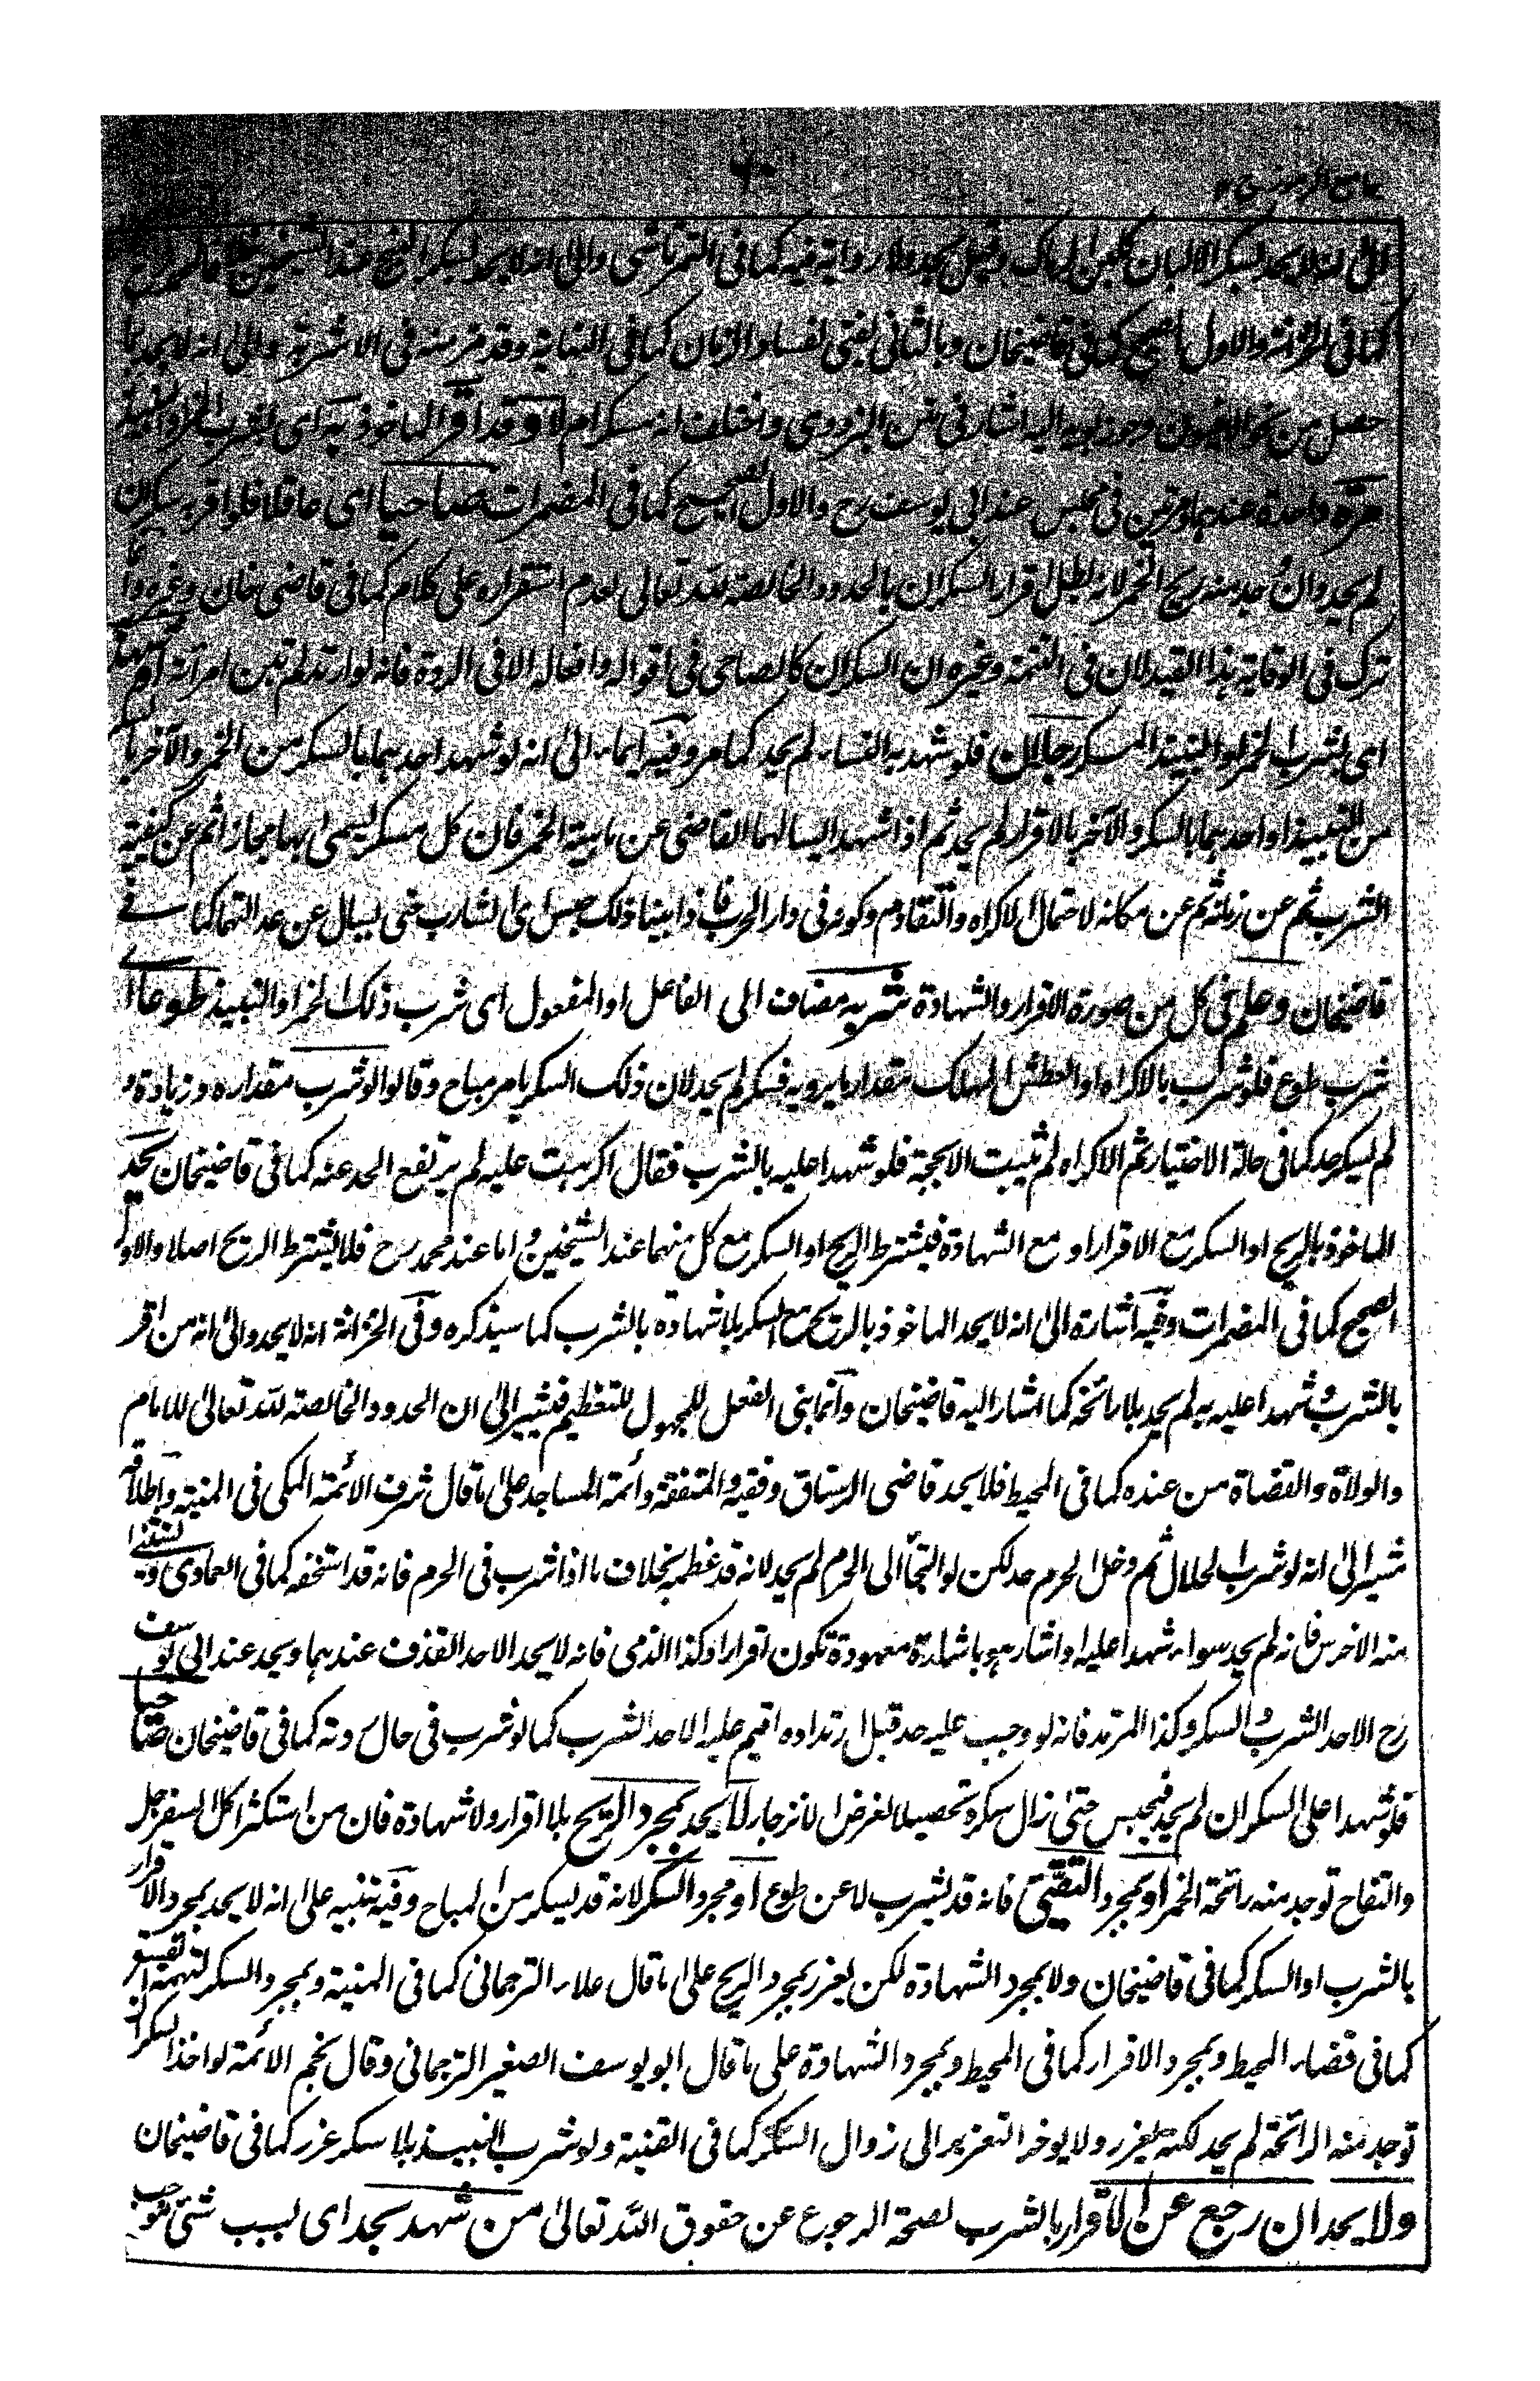 جامع الرموز ج ٢
الى انه لا يحد بسكر الالبان كلبن الرماك وقيل يحد ولا رواية فيه كما فى التمرتاشى والى انه لا يحد بسكر البنج عند الشيخين
كما فى الخزانة والاول اصح كما فى قاضيخان وبالثانى يفتى لفساد الزمان كما فى النهاية وقد مر منه فى الاشربة والى انه لا يحد بما
حصل من نحو الافيون وجوز بويه اليه اشار فى متن البزدوى واختلف انه مسكر ام لا وقد اقر الماخوذ به اى بشرب الخمر او
مرة واحدة عندهما ومرتين فى مجلس عند ابى يوسف رح والاول الصحيح كما فى المضمرات صاحيا اى عاقلا فلو اقر به سكران
لم يحد وان وجد منه ريح الخمر لانه بطل اقرار السكران بالحدود الخالصة لله تعالى لعدم استقراره على كلام كما فى قاضى خان وغيره وانما
ترك فى الوقاية هذا القيد لان فى التتمة وغيره ان السكران كالصاحى فى اقواله وافعاله الا فى الردة فانه لو ارتد لم تبن امرأته او شهد به
اى بشرب الخمر او النبيذ المسكر رجلان فلو شهد به النساء لم يحد كما مر وفيه ايماء الى انه لو شهد احدهما بالسكر من الخمر والآخر بالسكر
من النبيذ او احدهما بالسكر والآخر بالاقرار لم يحد ثم اذا شهدا يسالهما القاضى عن ماهية الخمر فان كل مسكر يسمى بها مجازا ثم عن كيفية
الشرب ثم عن زمانه ثم عن مكانه لاحتمال الاكراه والتقادم وكونه فى دار الحرب فاذا بينا ذلك حبس اى الشارب حتى يسال عن عدالتهما كما فى
قاضيخان وعلم فى كل من صورة الاقرار والشهادة شربه مضاف الى الفاعل او المفعول اى شرب ذلك الخمر او النبيذ طوعا اى
شرب طوع فلو شرب بالاكراه او العطش المهلك مقدار ما يرويه فسكر لم يحد لان ذلك السكر بامر مباح وقالوا لو شرب مقداره وزيادة و
لم يسكر حد كما فى حالة الاختيار ثم الاكراه لم يثبت الا بحجة فلو شهدا عليه بالشرب فقال اكرهت عليه لم يرتفع الحد عنه كما فى قاضيخان يحد
الماخوذ بالريح او السكر مع الاقرار او مع الشهادة فيشترط الريح او السكر مع كل منهما عند الشيخين و اما عند محمد رح فلا يشترط الريح اصلا والاول
الصحيح كما فى المضمرات وفيه اشارة الى انه لا يحد الماخوذ بالريح مع السكر بلا شهادة بالشرب كما سيذكره وفى الخزانة انه لا يحد والى انه من اقر
بالشرب و شهدا عليه به لم يحد بلا رائحة كما اشار اليه قاضيخان وانما بنى الفعل للمجهول للتعظيم فيشير الى ان الحدود الخالصة لله تعالى للامام
والولاة والقضاة من عنده كما فى المحيط فلا يحد قاضى الرستاق وفقيه والمتفقهة وأئمة المساجد على ما قال شرف الائمة المكى فى المنية واطلاقه
مشير الى انه لو شرب الحلال ثم دخل الحرم حد لكن لو التجأ الى الحرم لم يحد لانه قد عظمه بخلاف ما اذا شرب فى الحرم فانه قد استخفه كما فى العمادى ويستثنى
منه الاخرس فانه لم يحد سواء شهدا عليه او اشار هو باشارة معهودة تكون اقرارا وكذا الذمى فانه لا يحد الا حد القذف عندهما ويحد عند ابى يوسف
رح الا حد الشرب و السكر وكذا المرتد فانه لو وجب عليه حد قبل ارتداده اقيم عليه الا حد الشرب كما لو شرب فى حال ردته كما فى قاضيخان صاحيا
فلو شهدا على السكران لم يحد فيحبس حتى زال سكره تحصيلا لغرض الانزجار لا يحد بمجرد الريح بلا اقرار ولا شهادة فان من استكثر اكل السفرجل
والتفاح توجد منه رائحة الخمر او بمجرد التقيئ فانه قد يشرب لا عن طوع او مجرد السكر لانه قد يسكر من المباح وفيه تنبيه على انه لا يحد بمجرد الاقرار
بالشرب او السكر كما فى قاضيخان ولا بمجرد الشهادة لكن يعزر بمجرد الريح على ما قال علاء الترجمانى كما فى المنية وبمجرد السكر لتهمة الفسق
كما فى قضاء المحيط وبمجرد الاقرار كما فى المحيط وبمجرد الشهادة على ما قال ابو يوسف الصغير الترجمانى وقال نجم الائمة لو اخذ السكران
توجد منه الرائحة لم يحد لكنه يعزر ولا يوخر التعزير الى زوال السكر كما فى القنية ولو شرب النبيذ بلا سكر عزر كما فى قاضيخان
ولا يحد ان رجع عن الاقرار بالشرب لصحة الرجوع عن حقوق الله تعالى من شهد بحد اى بسبب شئى موجب